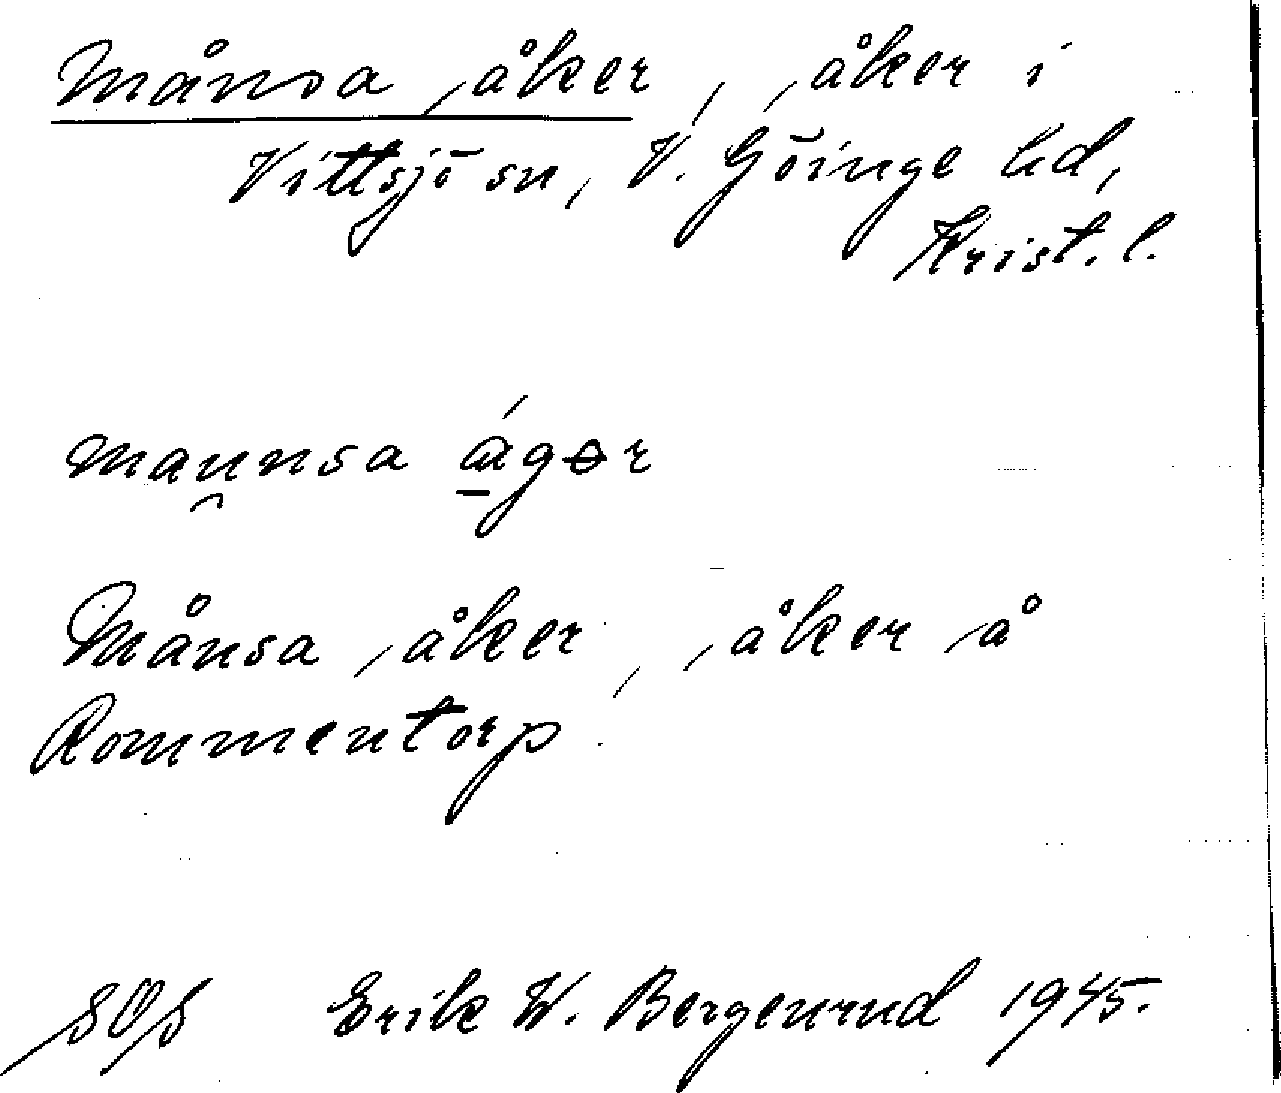 Månsa åker, åker i
Vittsjö sn, V. Göinge hd,
Krist. l.
mau̯nsa ág̱ər
Månsa åker, åker å
Rommentorp.
SOS Erik W. Bergenrud 1945.